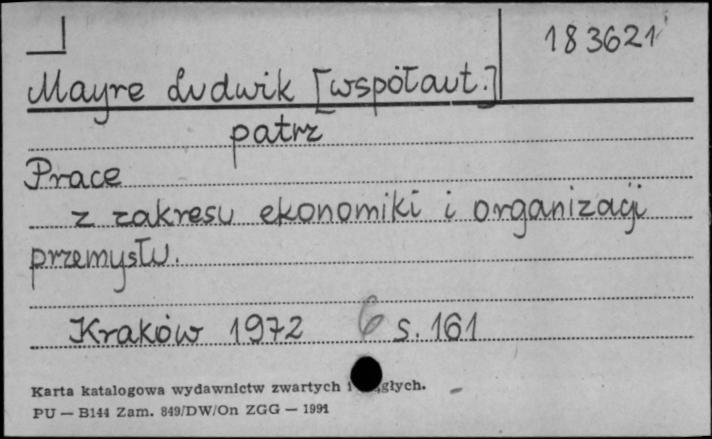 183621
Mayre Ludwik [współaut.]
patrz
Prace
z zakresu ekonomiki i organizacji
przemysłu.
Kraków 1972 6 s. 161
Karta katalogowa wydawnictw zwartych i
PU — B144 Zam. 849/DW/On ZGG — 1991